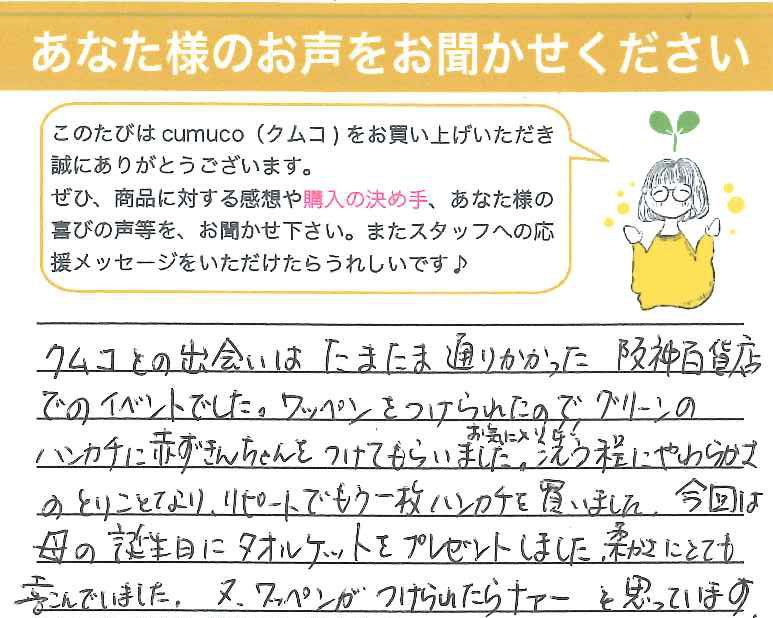 あなた様のお声をお聞かせください
このたびは cumuco（クムコ）をお買い上げいただき
誠にありがとうございます。
ぜひ、商品に対する感想や購入の決め手、あなた様の
喜びの声等を、お聞かせ下さい。またスタッフへの応
援メッセージをいただけたらうれしいです♪
クムコとの出会いは たまたま 通りかかった 阪神百貨店
でのイベントでした。ワッペンをつけられたので グリーンの
お気に入り
ハンカチに赤ずきんちゃんをつけてもらいました。洗う程にやわらかさ
のとりことなり、リピートでもう一枚ハンカチを買いました。今回は
母の誕生日にタオルケットをプレゼントしました。柔かさにとても
喜こんでいました。又、ワッペンがつけられたらナァー と思っています。